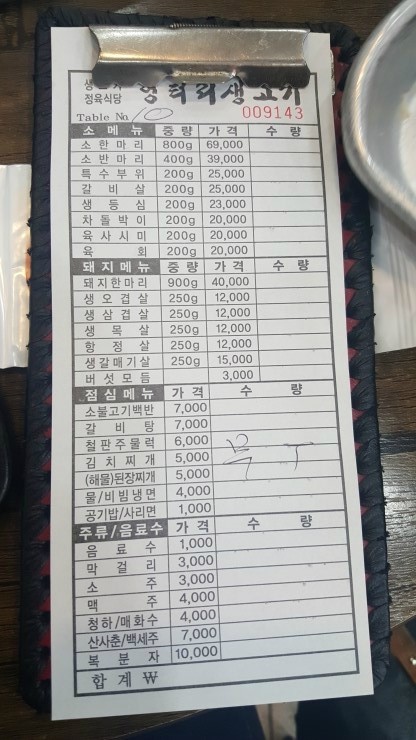 정육식당 엉터리생고기
Table No. 10 009143
소 메 뉴 중 량 가 격 수 량
소 한 마 리 800g 69,000
소 반 마 리 400g 39,000
특 수 부 위 200g 25,000
갈 비 살 200g 25,000
생 등 심 200g 23,000
차 돌 박 이 200g 20,000
육 사 시 미 200g 20,000
육 회 200g 20,000
돼 지 메 뉴 중 량 가 격 수 량
돼 지 한 마 리 900g 40,000
생 오 겹 살 250g 12,000
생 삼 겹 살 250g 12,000
생 목 살 250g 12,000
항 정 살 250g 12,000
생갈매기살 250g 15,000
버 섯 모 듬 3,000
점 심 메 뉴 가 격 수 량
소불고기백반 7,000
갈 비 탕 7,000
철판주물럭 6,000
김 치 찌 개 5,000
(해물)된장찌개 5,000
물/비빔냉면 4,000
공기밥/사리면 1,000
주류/음료수 가 격 수 량
음 료 수 1,000
막 걸 리 3,000
소 주 3,000
맥 주 4,000
청하/매화수 4,000
산사춘/백세주 7,000
복 분 자 10,000
합 계 ₩